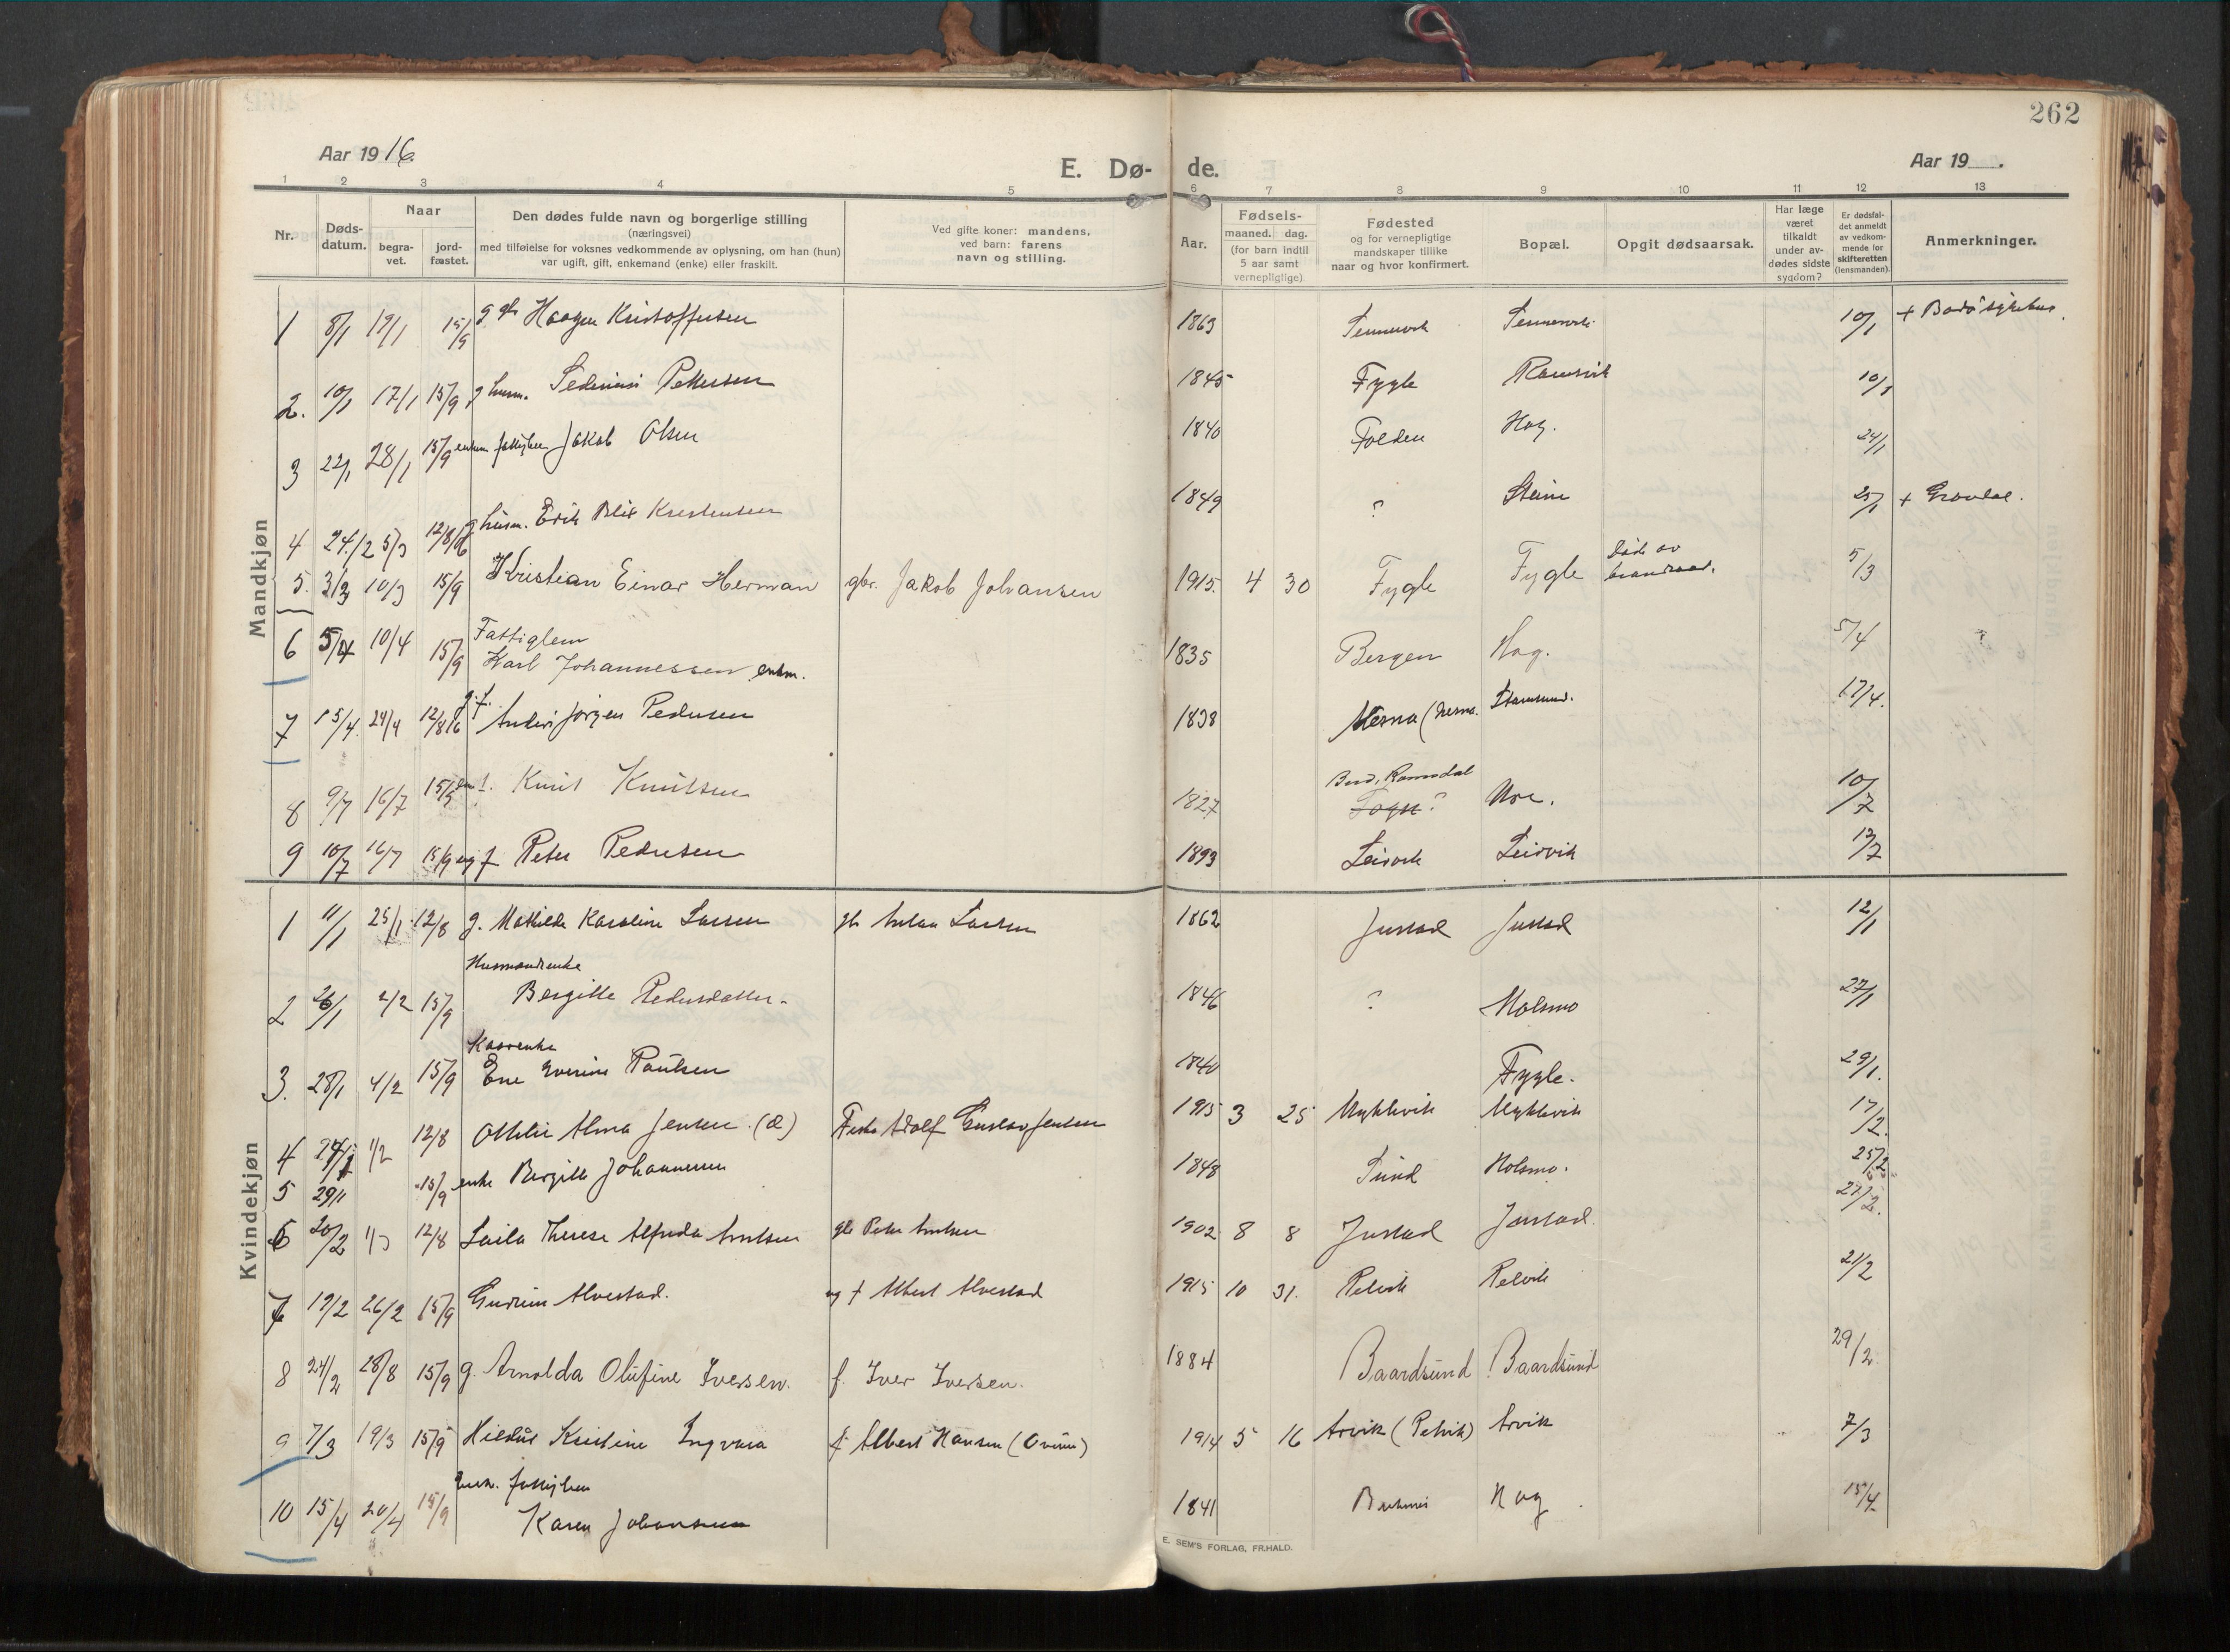 262
Aar 1916.
E. Dø- de.
Aar 19 .
1 2 3 4 5 6 7 8 9 10 11 12 13
Nr.
Døds-
datum.
Naar
begra-
vet.
jord-
fæstet.
Den dødes fulde navn og borgerlige stilling
(næringsvei)
med tilføielse for voksnes vedkommende av oplysning, om han (hun)
var ugift, gift, enkemand (enke) eller fraskilt.
Ved gifte koner: mandens,
ved barn: farens
navn og stilling.
Aar.
Fødsels-
maaned. dag.
(for barn indtil
5 aar samt
vernepligtige)
Fødested
og for vernepligtige
mandskaper tillike
naar og hvor konfirmert.
Bopæl.
Opgit dødsaarsak.
Har læge
været
tilkaldt
under av-
dødes sidste
sygdom?
Er dødsfal-
det anmeldt
av vedkom-
mende for
skifteretten
(lensmanden).
Anmerkninger.
Mandkjøn
1 8/1 19/1 15/9 g. Haagen Kristoffersen 1863 10/1 + Bodø sykehus.
2. 10/1 17/1 15/9 g husm. Pettersen 1845 Fygle Ramsvik 10/1
3 22/1 28/1 15/9 enkem fattiglem Jakob Olsen 1840 Folden Hag. 24/1
4 24/2 5/3 12/8 16 g husm. Erik Blix Kristensen 1849 ? Steine 25/1 + Gravdal.
5. 3/3 10/3 15/9 Kristian Einar Herman gbr. Jakob Johansen 1915. 4 30 Fygle Fygle død av 5/3
6 5/4 10/4 15/9 Fattiglem
Karl Johannessen enkm. 1835 Bergen Hag. 5/4
7 15/4. 24/4 12/8 16 g. f. Jørgen Pedersen 1838 Stamsund. 17/4.
8 9/7 16/7 Knut Knutsen 1827 Bud, Romsdal
Sogn? Ure. 10/7
9 10/7 16/7 15/9 ug f Peter Pedersen 1893 Leirvik Leirvik 13/7
Kvindekjøn
1 11/1 25/1 12/8 g. Mathilde Karoline Larsen gbr Larsen 1862 Justad Justad 12/1
Husmandsenke
2 26/1 2/2 15/9 Bergitte Pedersdatter. 1846 ? Holsmo 27/1
Kaarenke
3. 28/1 4/2 15/9 Ane Paulsen 1840 Fygle. 29/1.
4 1/2 12/8 Othelie Alma Jensen (d) Fisker Adolf Gustav Jensen 1915 3 25 Myklevik Myklevik 17/2.
5 29/1 15/9 enke Bergitte Johannessen 1848 Sund Holsmo. 25/2
6 20/2 1/3 12/8 Laila Therese Alfrida Arntsen gbr Peter Arntsen 1902 8 8 Justad Justad. 27/2.
7 19/2 26/2 15/9 Gudrun Alvestad. ug f Albert Alvestad 1915 10 31. Petvik Petvik 21/2
8 24/2 28/8 15/9 g. Arnolda Olufine Iversen. f. Iver Iversen. 1884 Baardsund Baardsund 29/2
9 7/3 19/3 15/9 Kristine Ingvara f Albert Hansen 1914 5 16 Arvik (Petvik) Arvik 7/3
10 15/4 20/4 15/9 enk. fattiglem
Karen Johansen 1841 Hag 15/4
E. SEM'S FORLAG, FR.HALD.